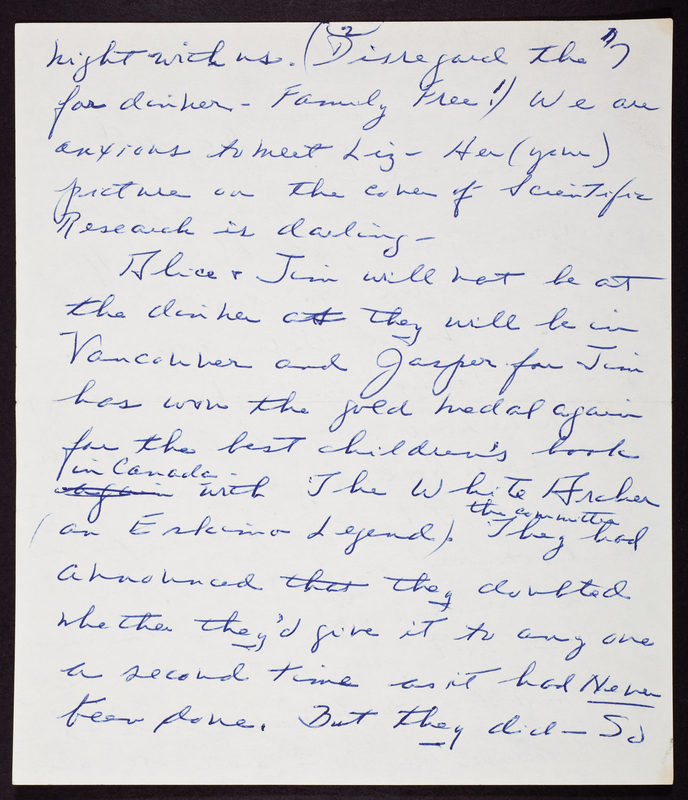 night with us. (Disregard the "7
for dinner - Family Free!) We are
anxious to meet Liz - Her (your)
picture on the cover of Scientific
Research is darling -
Alice & Jim will not be at
the dinner as they will be in
Vancouver and Jasper for Jim
has won the gold medal again
for the best children's book
in Canada
again with The White Archer
the committee
(an Eskimo Legend). They had
announced that they doubted
whether they'd give it to any one
a second time as it had Never
been done. But they did - So